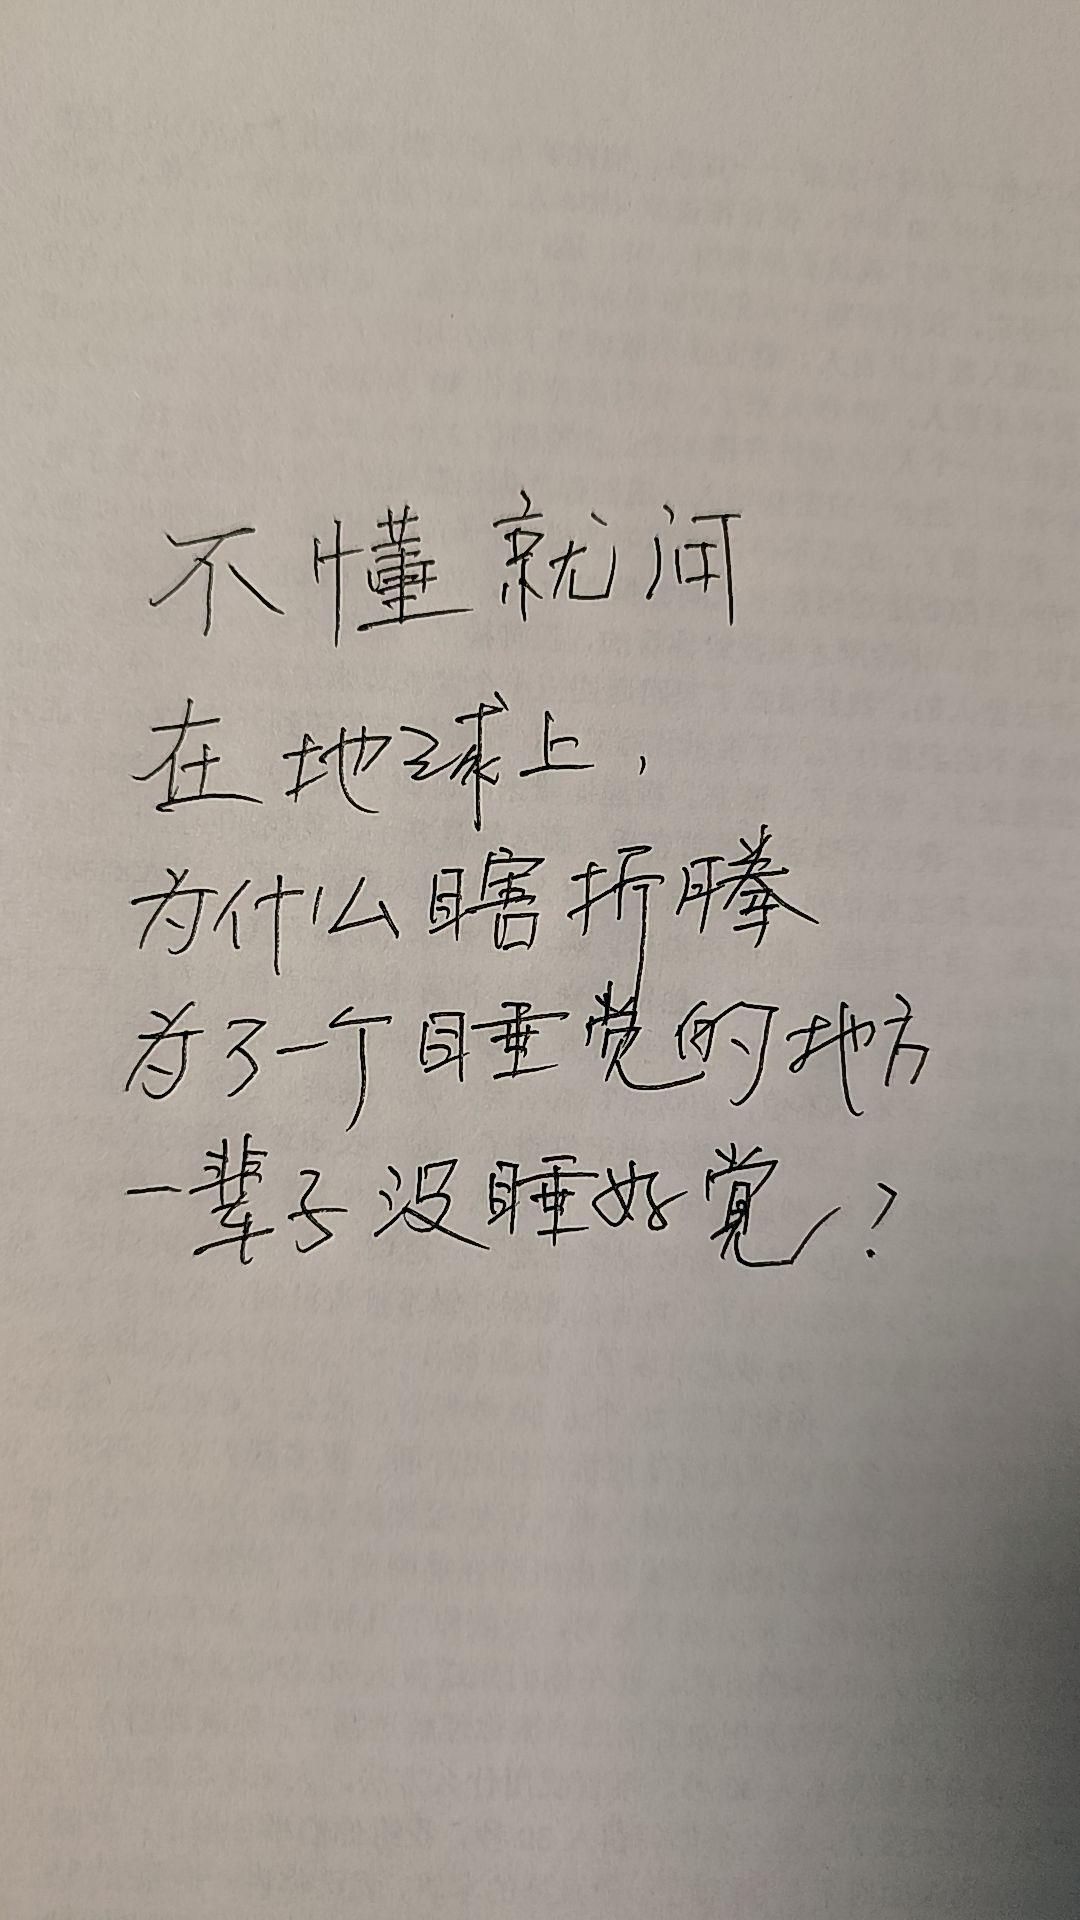 不懂就问
在地球上，
为什么瞎折腾
为了一个睡觉的地方
一辈子没睡好觉？